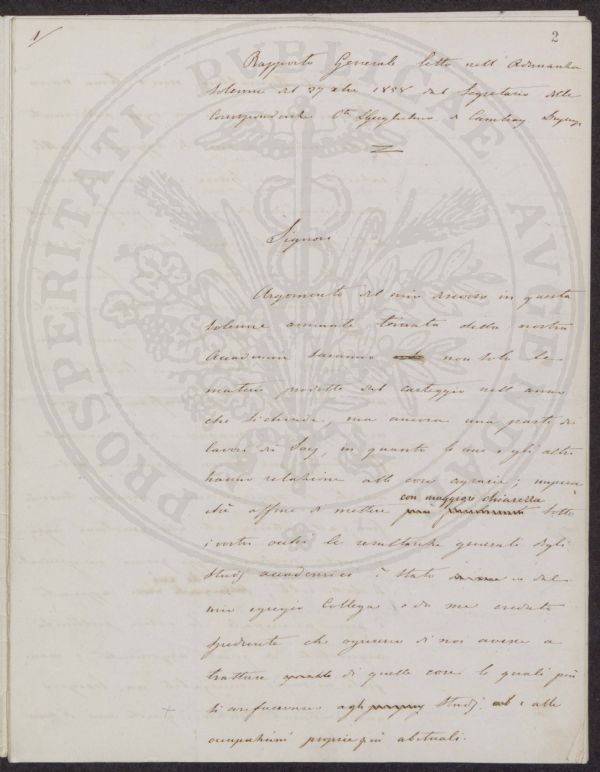 1/
2
Rapporto Generale letto nell' Adunanza
solenne del 27 xbre 1858 dal Segretario delle
Corrispondenze Cte Guglielmo de Cambray Digny
Signori
Argomento del mio discorso in questa
solenne annuale tornata della nostra
Accademia saranno non solo le
materie prodotte dal carteggio nell' anno
che si chiude, ma ancora una parte dei
lavori dei Socj, in quanto le une e gli altri
hanno relazione alle cose agrarie; impercioc
chè affine di mettere con maggiore chiarezza sotto
i vostri occhi le resultanze generali degli
studj accademici è stato e dal
mio egregio Collega e da me creduto
spediente che ognuno di noi avesse a
trattare di quelle cose le quali più
si confacevano agli studj e alle
occupazioni proprie più abituali.
PROSPERITATI PUBLICAE AUGENDAE